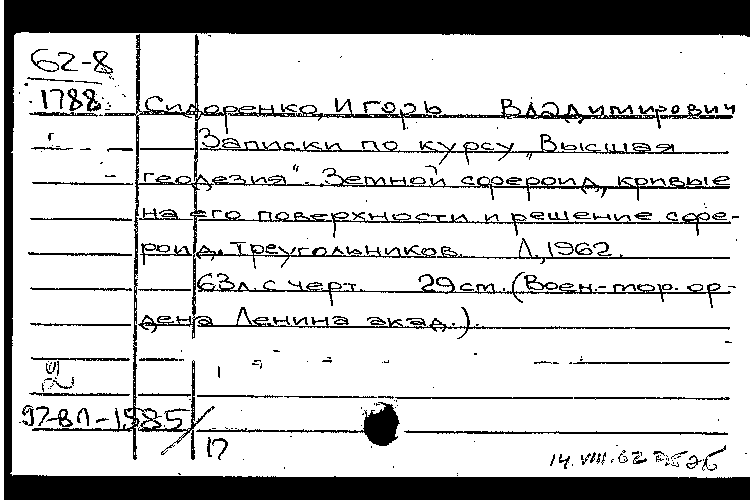 62-8
1788
Сидоренко, Игорь Владимирович
Записки по курсу „Высшая
геодезия". Земной сфероид, кривые
на его поверхности и решение сфе-
роид. треугольников. Л., 1962.
63л. с черт. 29см. (Воен.-мор. ор-
дена Ленина акад.).
2
97-ВЛ-1585/17
14.VIII.62